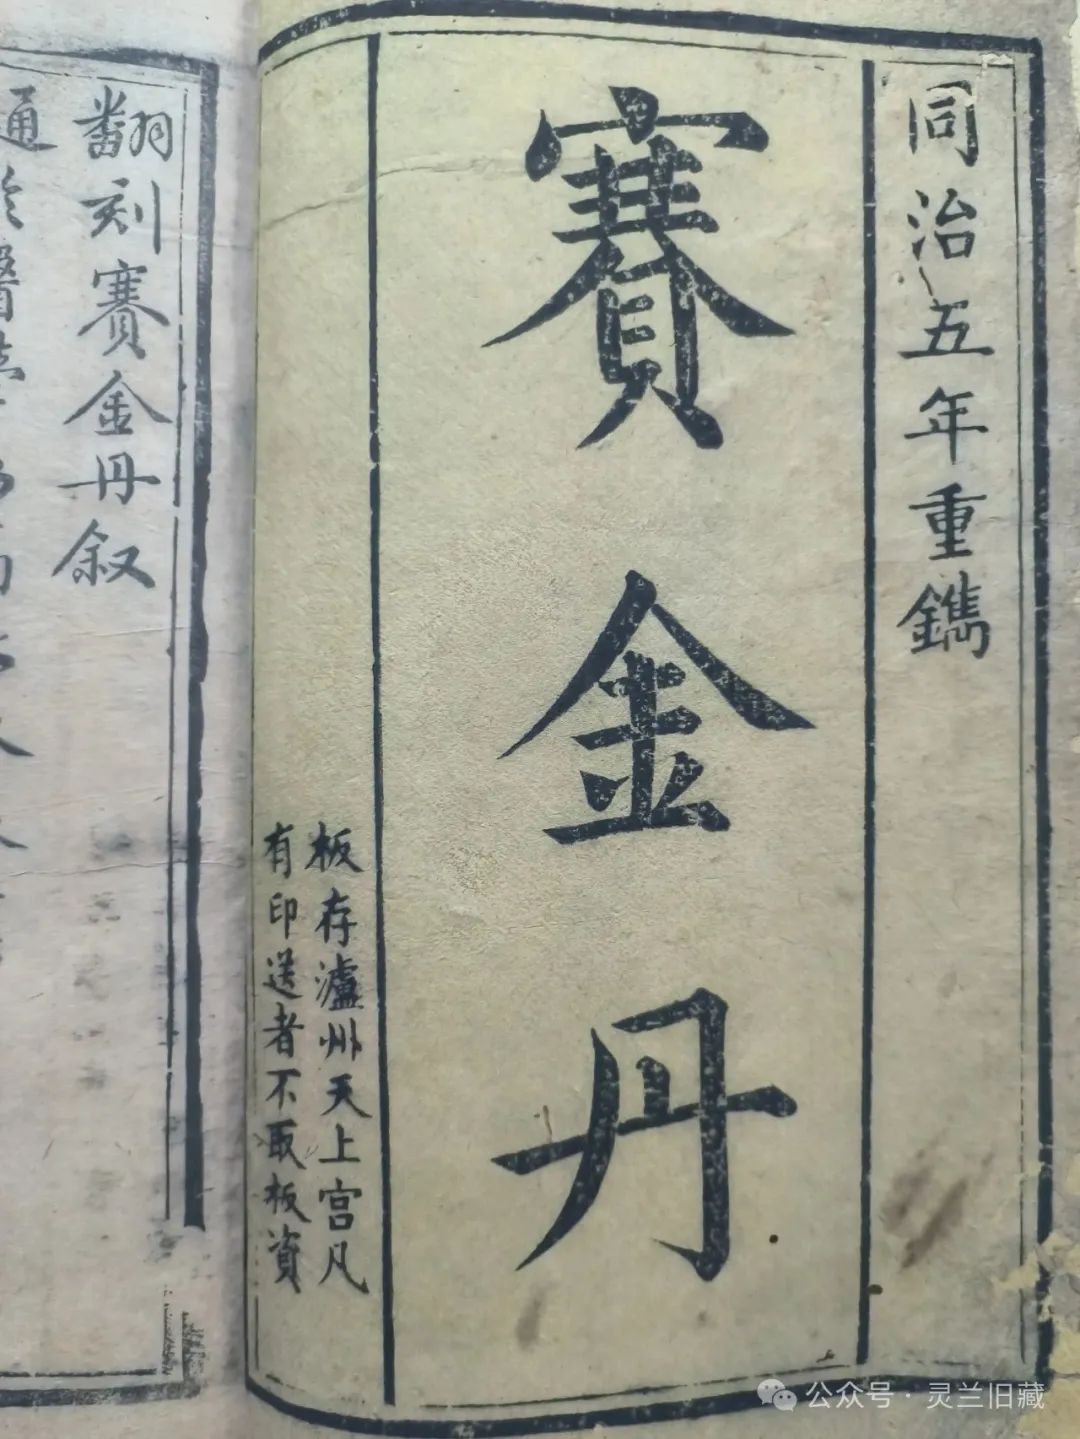 同治五年重鐫
賽金丹
板存瀘州天上宫凡
有印送者不取板資
翻刻賽金丹叙
通於醫
公众号·灵兰旧藏